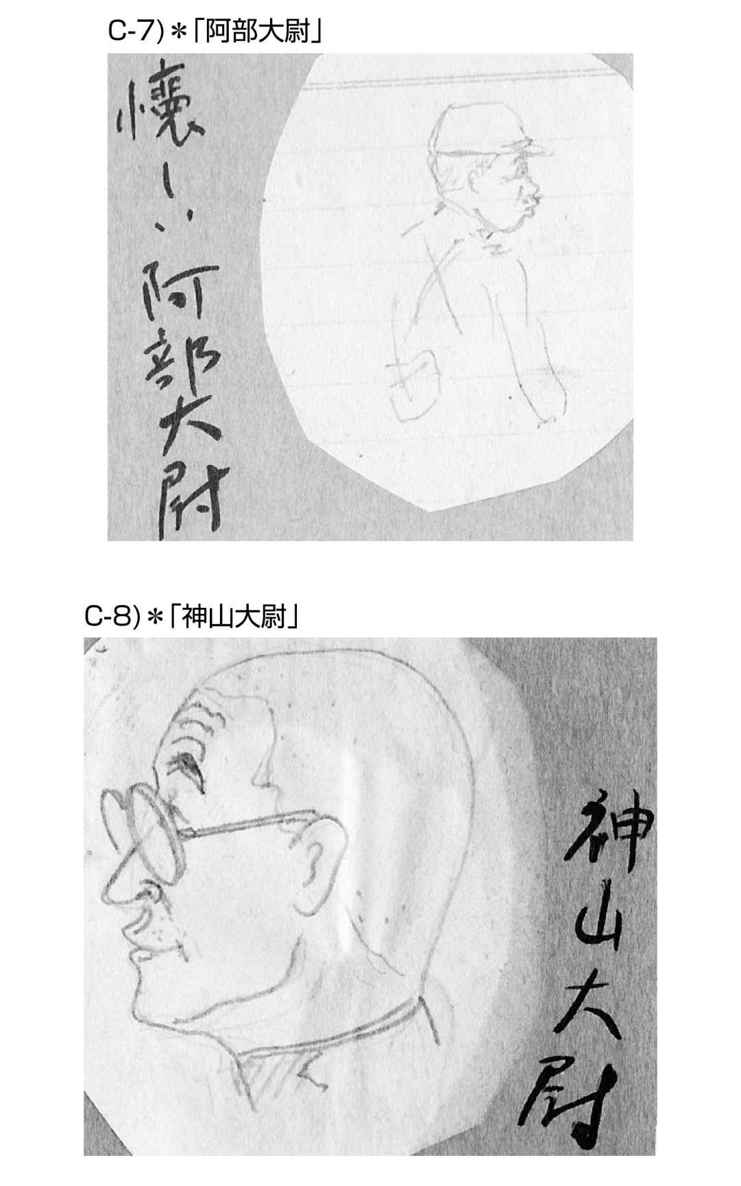 C-7)＊「阿部大尉」
懐しい阿部大尉
C-8)＊「神山大尉」
神山大尉